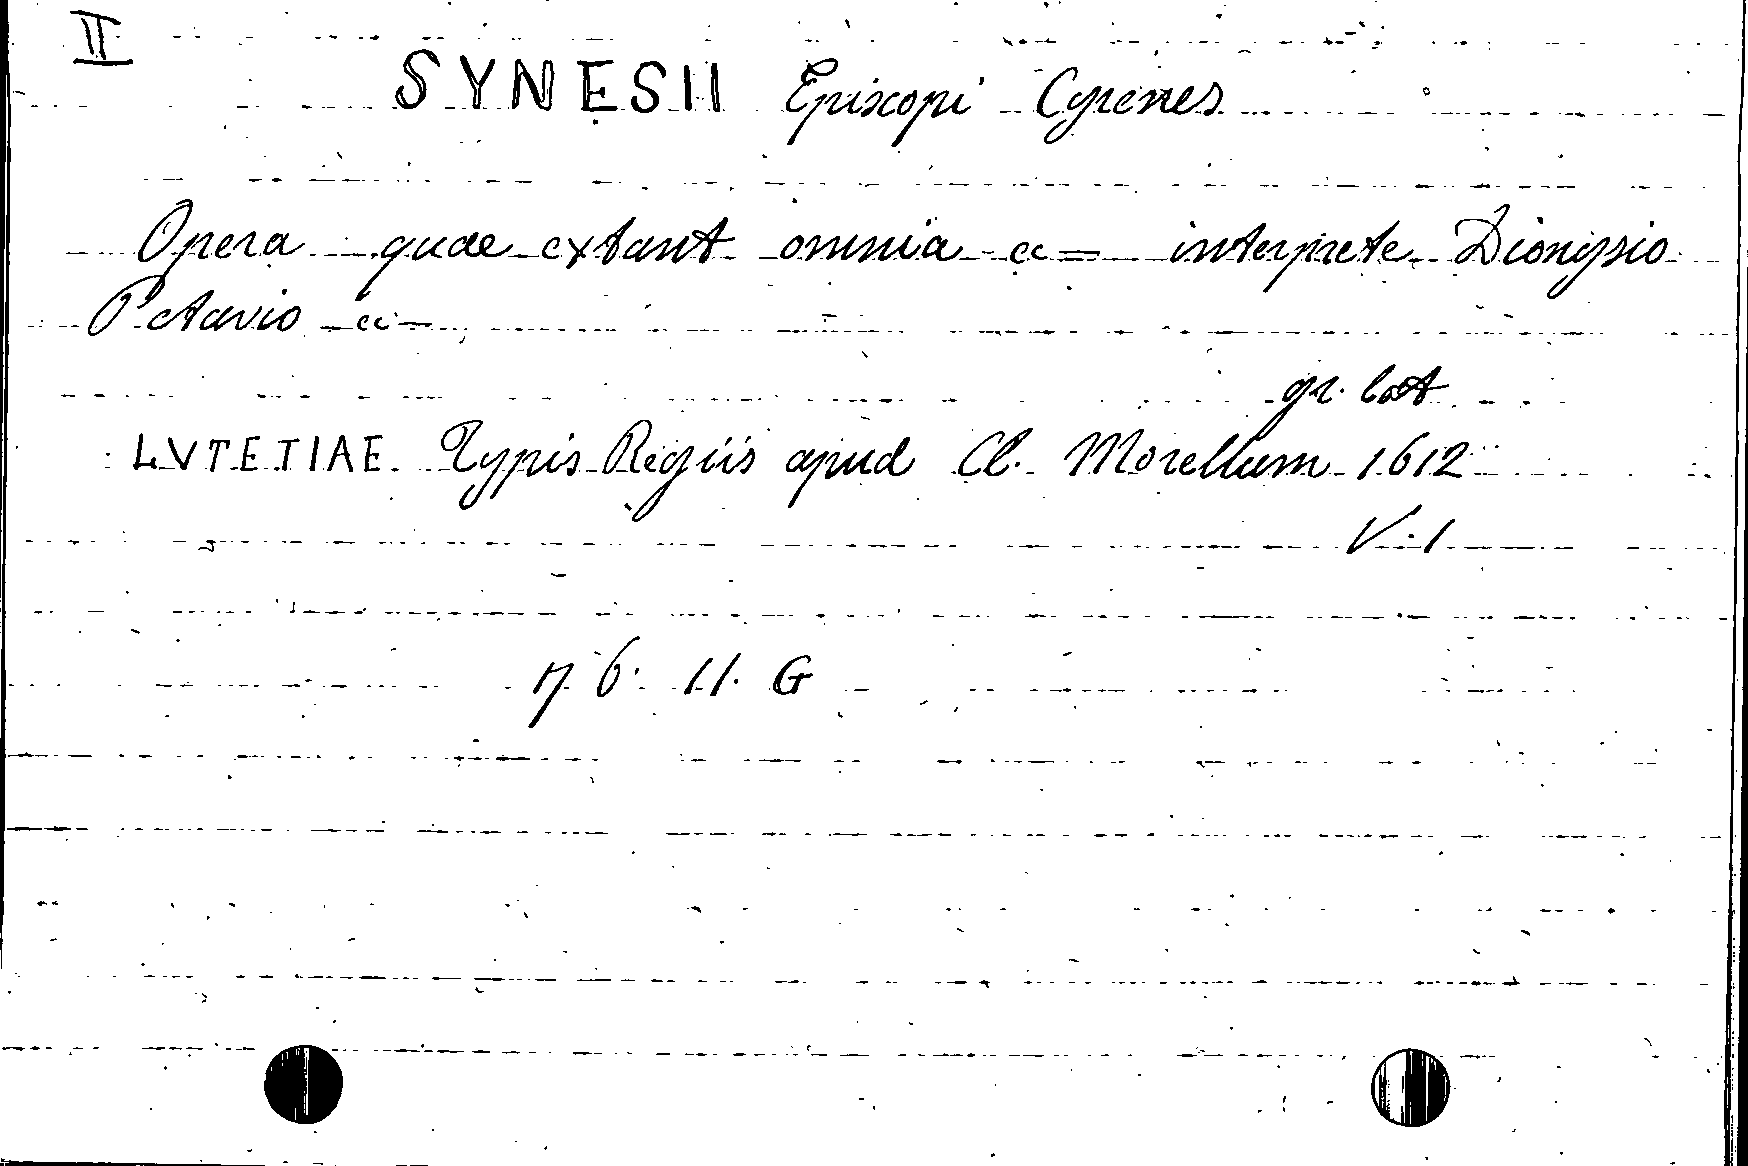 II
SYNESII Episcopi Cyrenes
Opera quae extant omnia a = interprete Dionysio
Petavio -a-
gr. lat
LVTETIAE Typis Regiis apud Cl. Morellum 1612
V. 1
6. 11. G